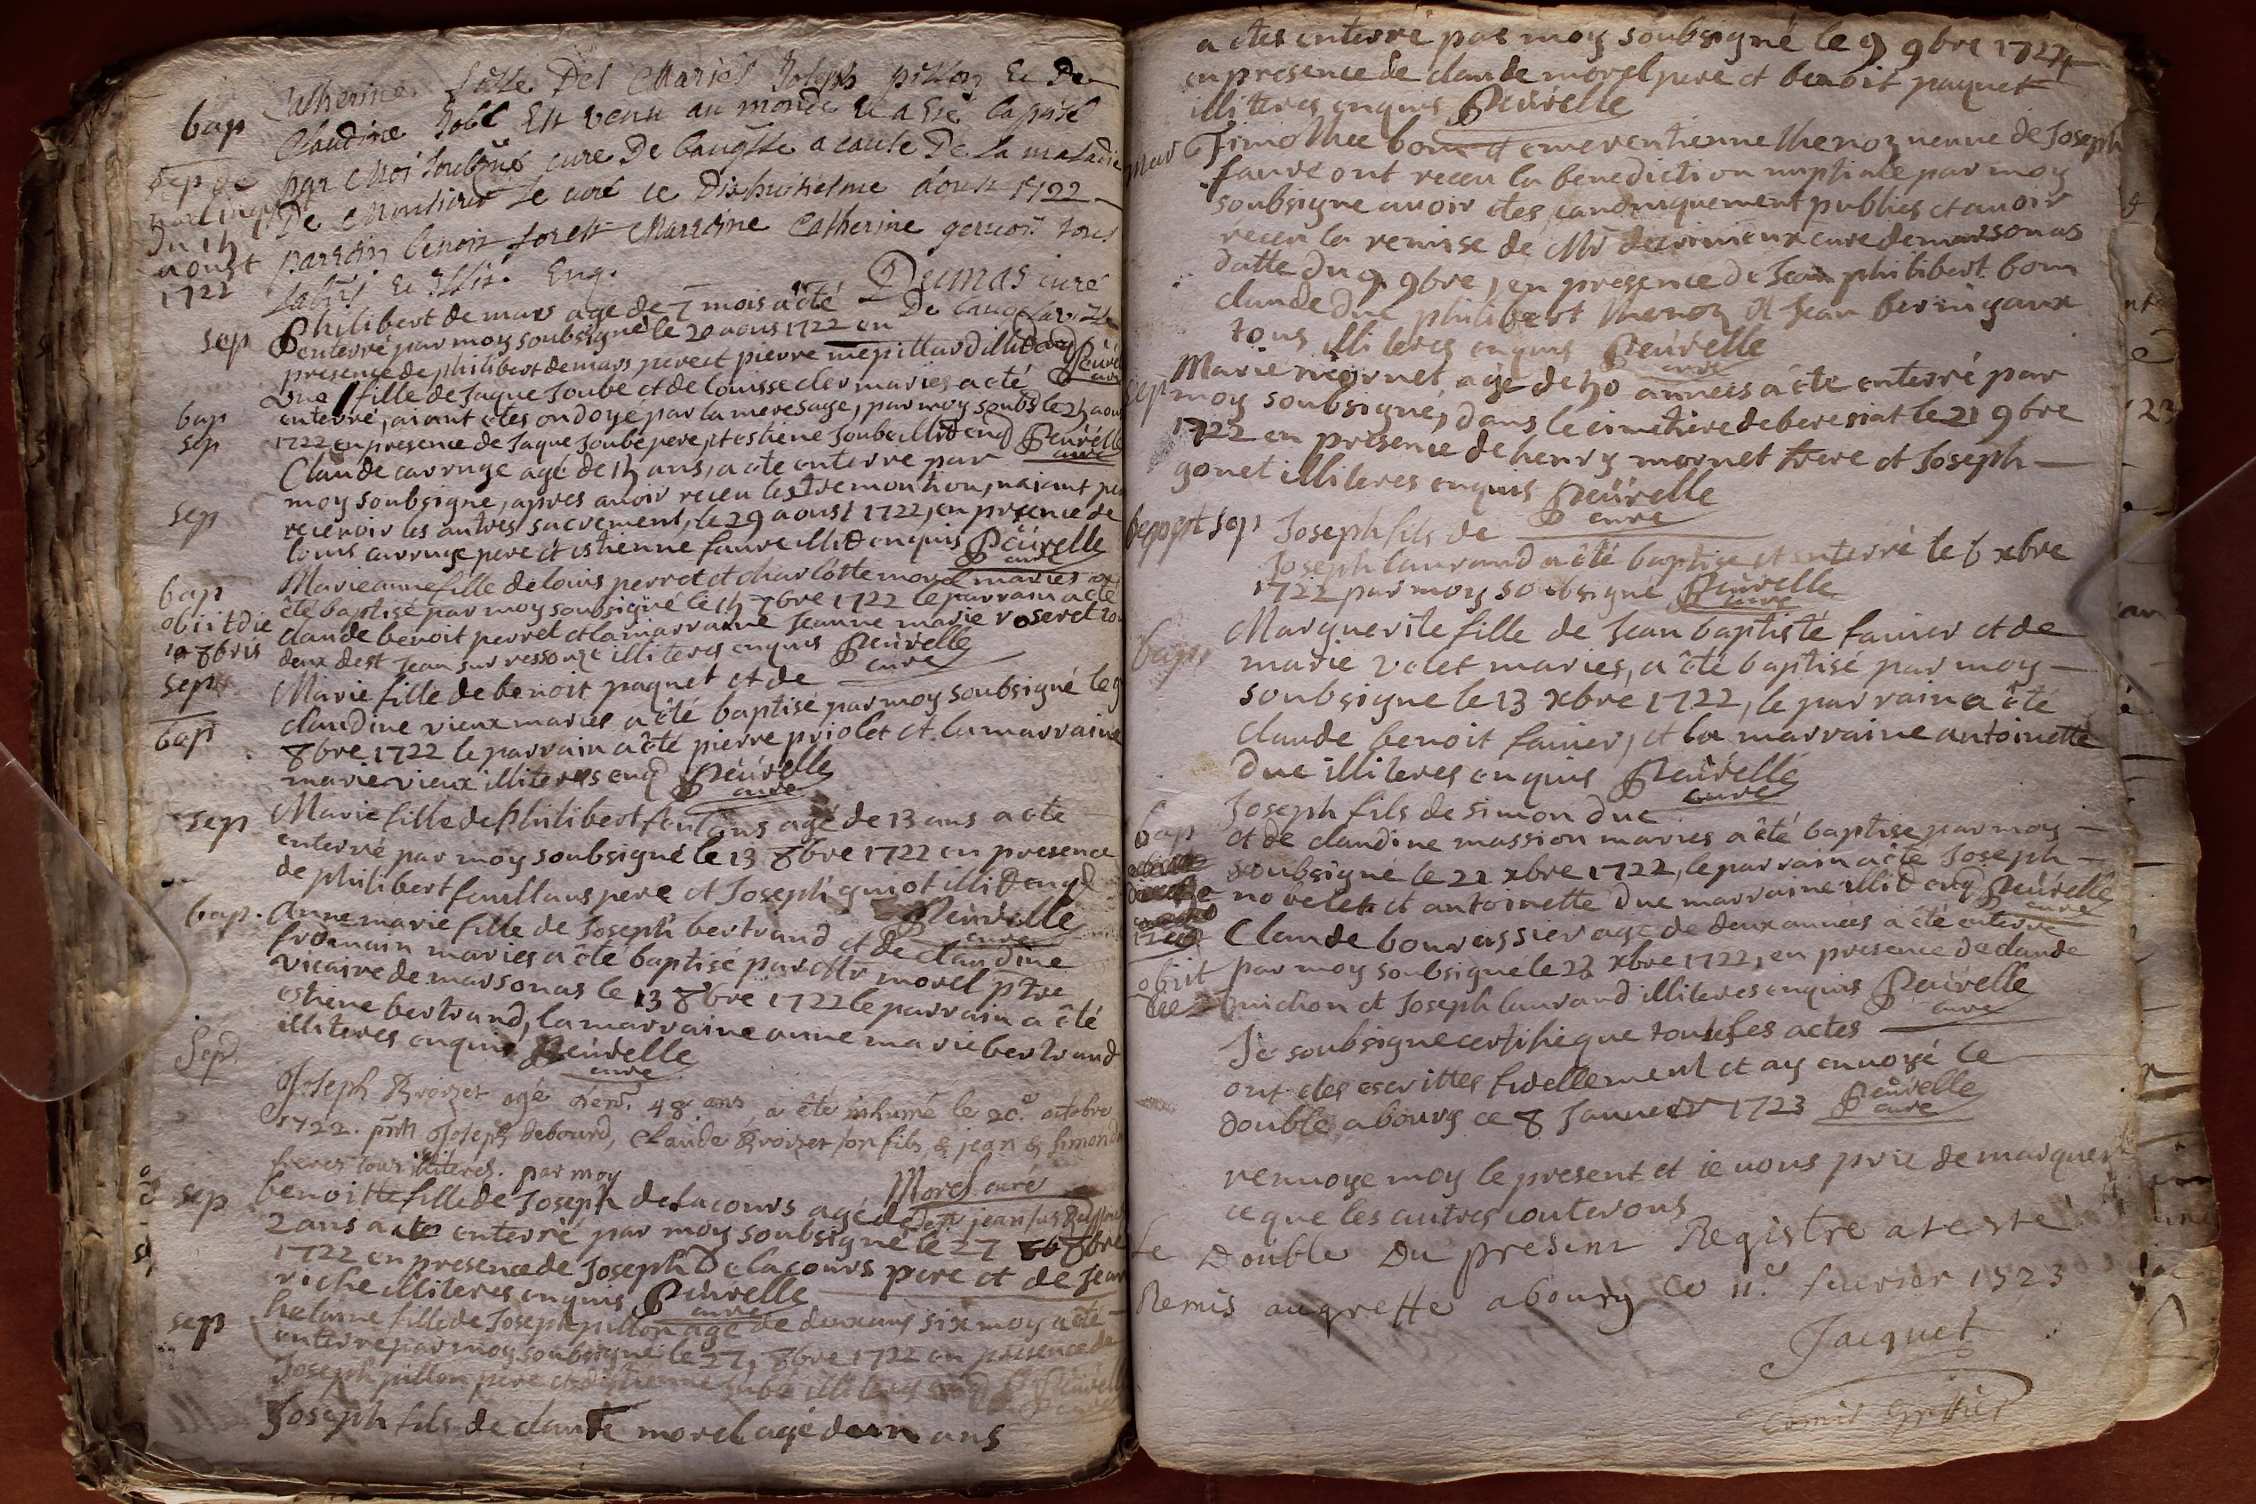 bap
Catherine fille Des Mariés Joseph pillon Et De
Claudine Jobt Est venu au monde Et a Esté baptisé
sep de
par Moi soubsigné curé De a cause De la maladie
De Monsieur Le curé ce Dixhuitiesme aoust 1722
du 14
aoust
1722
parrain benoit forest Marraine Catherine tous
Et Illit. Enq.
Dumas curé
sep
Philibert de mars agé de 7 mois a été
enterré par moy soubsigné le 20 aous 1722 en
presence de philibert demars pere et pierre mepillard illit enq Peuvrelle
curé
bap
sep
une fille de Jaque Joube et de Louisse cler maries a eté
enterré, aiant etes ondoye par la mere sage, par moy soubs le 24 aous
1722 en presence de Jaque Joube pere, et estiene Joube illit enq Peuvrelle
curé
sep
Claude carruge agé de 14 ans, a ete enterre par
moy soubsigne, apres avoir receu lestremontion, naiant peu
recevoir les autres sacrement, le 29 aoust 1722, en presence de
louis carruge pere et estienne faure illit enquis Peuvrelle
curé
bap
obiit die
10 8bris
Marie anne fille de louis perret et charlotte morel maries a
été baptisé par moy soubsigné le 14 7bre 1722 le parrain a eté
claude benoit perret et la marraine Jeanne marie roseret tou
deux de st Jean sur ressouze illiteres enquis Peuvrelle
curé
sep
bap
Marie fille de benoit paquet et de
claudine vieux maries a été baptisé par moy soubsigné le 9
8bre 1722 le parrain a été pierre priolet et la marraine
marie vieux illiteres enq Peuvrelle
curé
sep
Marie fille de philibert agé de 13 ans a ete
enterré par moy soubsigné le 13 8bre 1722 en presence
de philibert feuillans pere et Joseph guiot illit enqd
Peuvrelle
curé
bap.
Anne marie fille de Joseph bertrand et de claudine
fromain maries a été baptisé par Mr morel ptre
vicaire de marsonas le 13 8bre 1722 le parrain a été
estiene bertrand, la marraine anne marie bertrand
illiteres enquis Peuvrelle
curé
Sep.
Joseph Broizet agé 48 ans, a été inhumé le 20e octobre
1722. pnts Joseph Debourd, Claude Broizet son fils, & jean & simon
freres tous illiteres. par moy
Morel curé
de st jean sus
sep
benoitte fille de Joseph delacours agé de
2 ans a ete enterré par moy soubsigné le 27 8bre
1722 en presence de Joseph Delacours pere et de Jean
riche illiteres enquis Peuvrelle
curé
sep
fille de Joseph pillon agé de deux ans six moy a eté
enterre par moy soubsigné le 27, 8bre 1722 en presence de
Joseph pillon pere et d'estienne Jube illiteres enq Peuvrelle
Joseph fils de claude morel agé de un ans
a etes enterré par moy soubsigné le 9 9bre 1722
en presence de claude morel pere et benoit paquet
illiteres enquis Peuvrelle
mar
Timothee bom et emerentienne thenoz veuve de Joseph
faure ont receu la benediction nuptiale par moy
soubsigne avoir etes canoniquement publies et avoir
receu la remise de Mr curé de marsonas
datte du 9 9bre, en presence de Jean philibert bom
claude duc philibert thenoz et Jean
tous illiteres enquis Peuvrelle
curé
sep
Marie mornet agé de 40 annees a ete enterré par
moy soubsigné, dans le cimetiere de beresiat le 21 9bre
1722 en presence de henry mornet frere et Joseph
gonet illiteres enquis Peuvrelle
curé
bap et sep
Joseph fils de
Joseph laurand a été baptise et enterré le 6 xbre
1722 par moy soubsigné Peuvrelle
curé
bap
Marguerite fille de Jean baptiste favier et de
marie volet maries, a été baptisé par moy
soubsigne le 13 xbre 1722, le parrain a été
claude benoit favier, et la marraine antoinette
duc illiteres enquis Peuvrelle
curé
bap
Joseph fils de simon duc
et de claudine massion maries a été baptise par moy
soubsigné le 21 xbre 1722, le parrain a été Joseph
novelet et antoinette duc marraine illit enq Peuvrelle
curé
obiit
Claude bourassier agé de deux annees a été enterré
par moy soubsigné le 23 xbre 1722, en presence de claude
guichon et Joseph laurand illiteres enquis Peuvrelle
curé
Je soubsigne certifie que toutes les actes
ont etes escrittes fidellement et ay envoyé le
double a bourg ce 8 Janvier 1723 Peuvrelle
curé
renvoye moy le present et ie vous prie de marquer
ce que les autres couterons
Le Double Du present Registre a esté
Remis au greffe a bourg ce 11e fevrier 1723
Jacquet
Comis Greffier